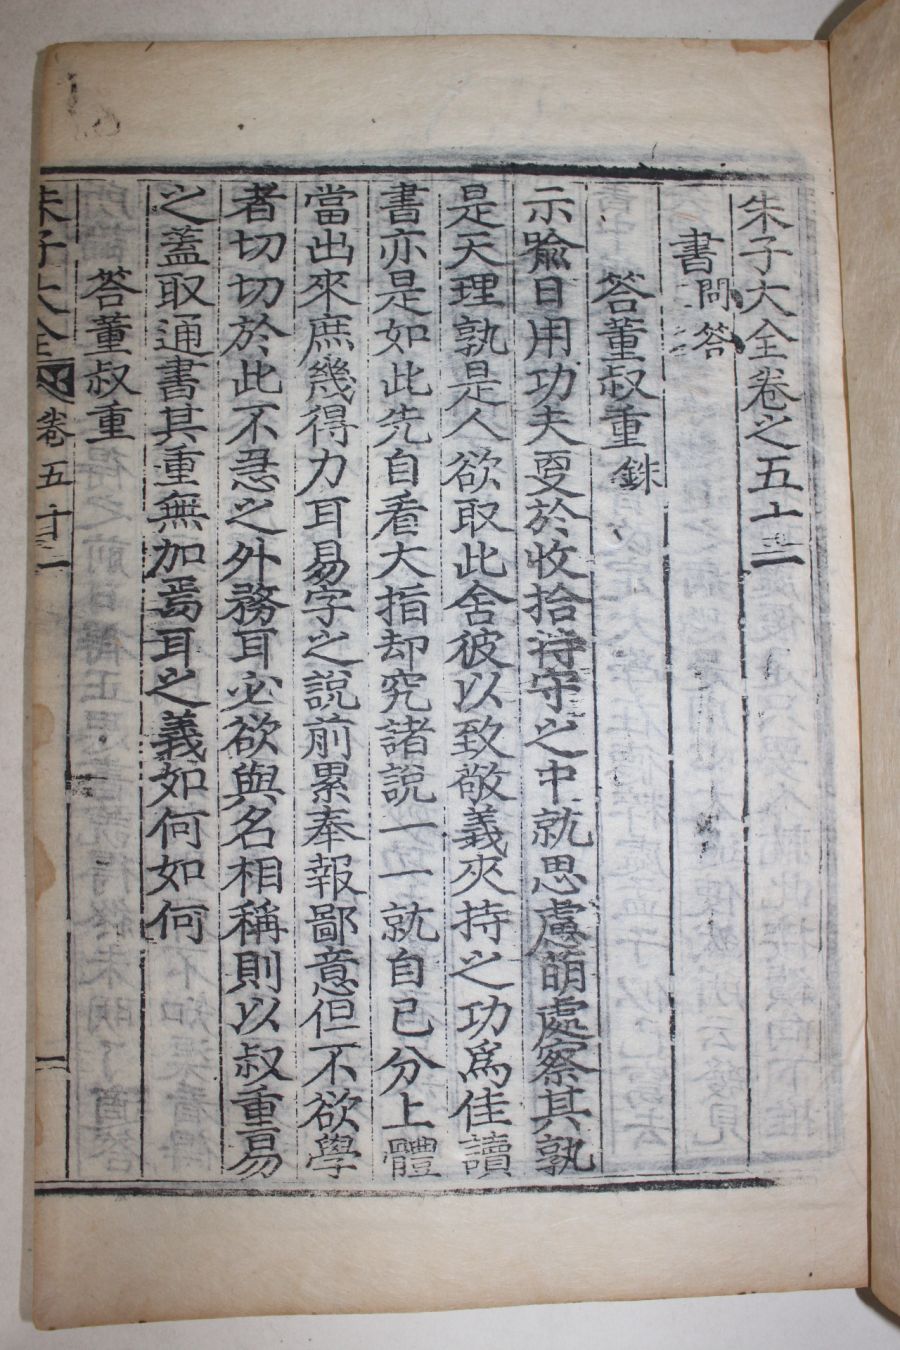 朱子大全卷之五十一
書問答
答董叔重銖
示喩日用功夫更於收拾持守之中就思慮萌處察其孰
是天理孰是人欲取此舍彼以致敬義夾持之功爲佳讀
書亦是如此先自看大指却究諸說一一就自己分上體
當出來庶幾得力耳易字之說前累奉報鄙意但不欲學
者切切於此不急之外務耳必欲與名相稱則以叔重易
之蓋取通書其重無加焉耳之義如何如何
答董叔重
朱子大全 卷五十一 一